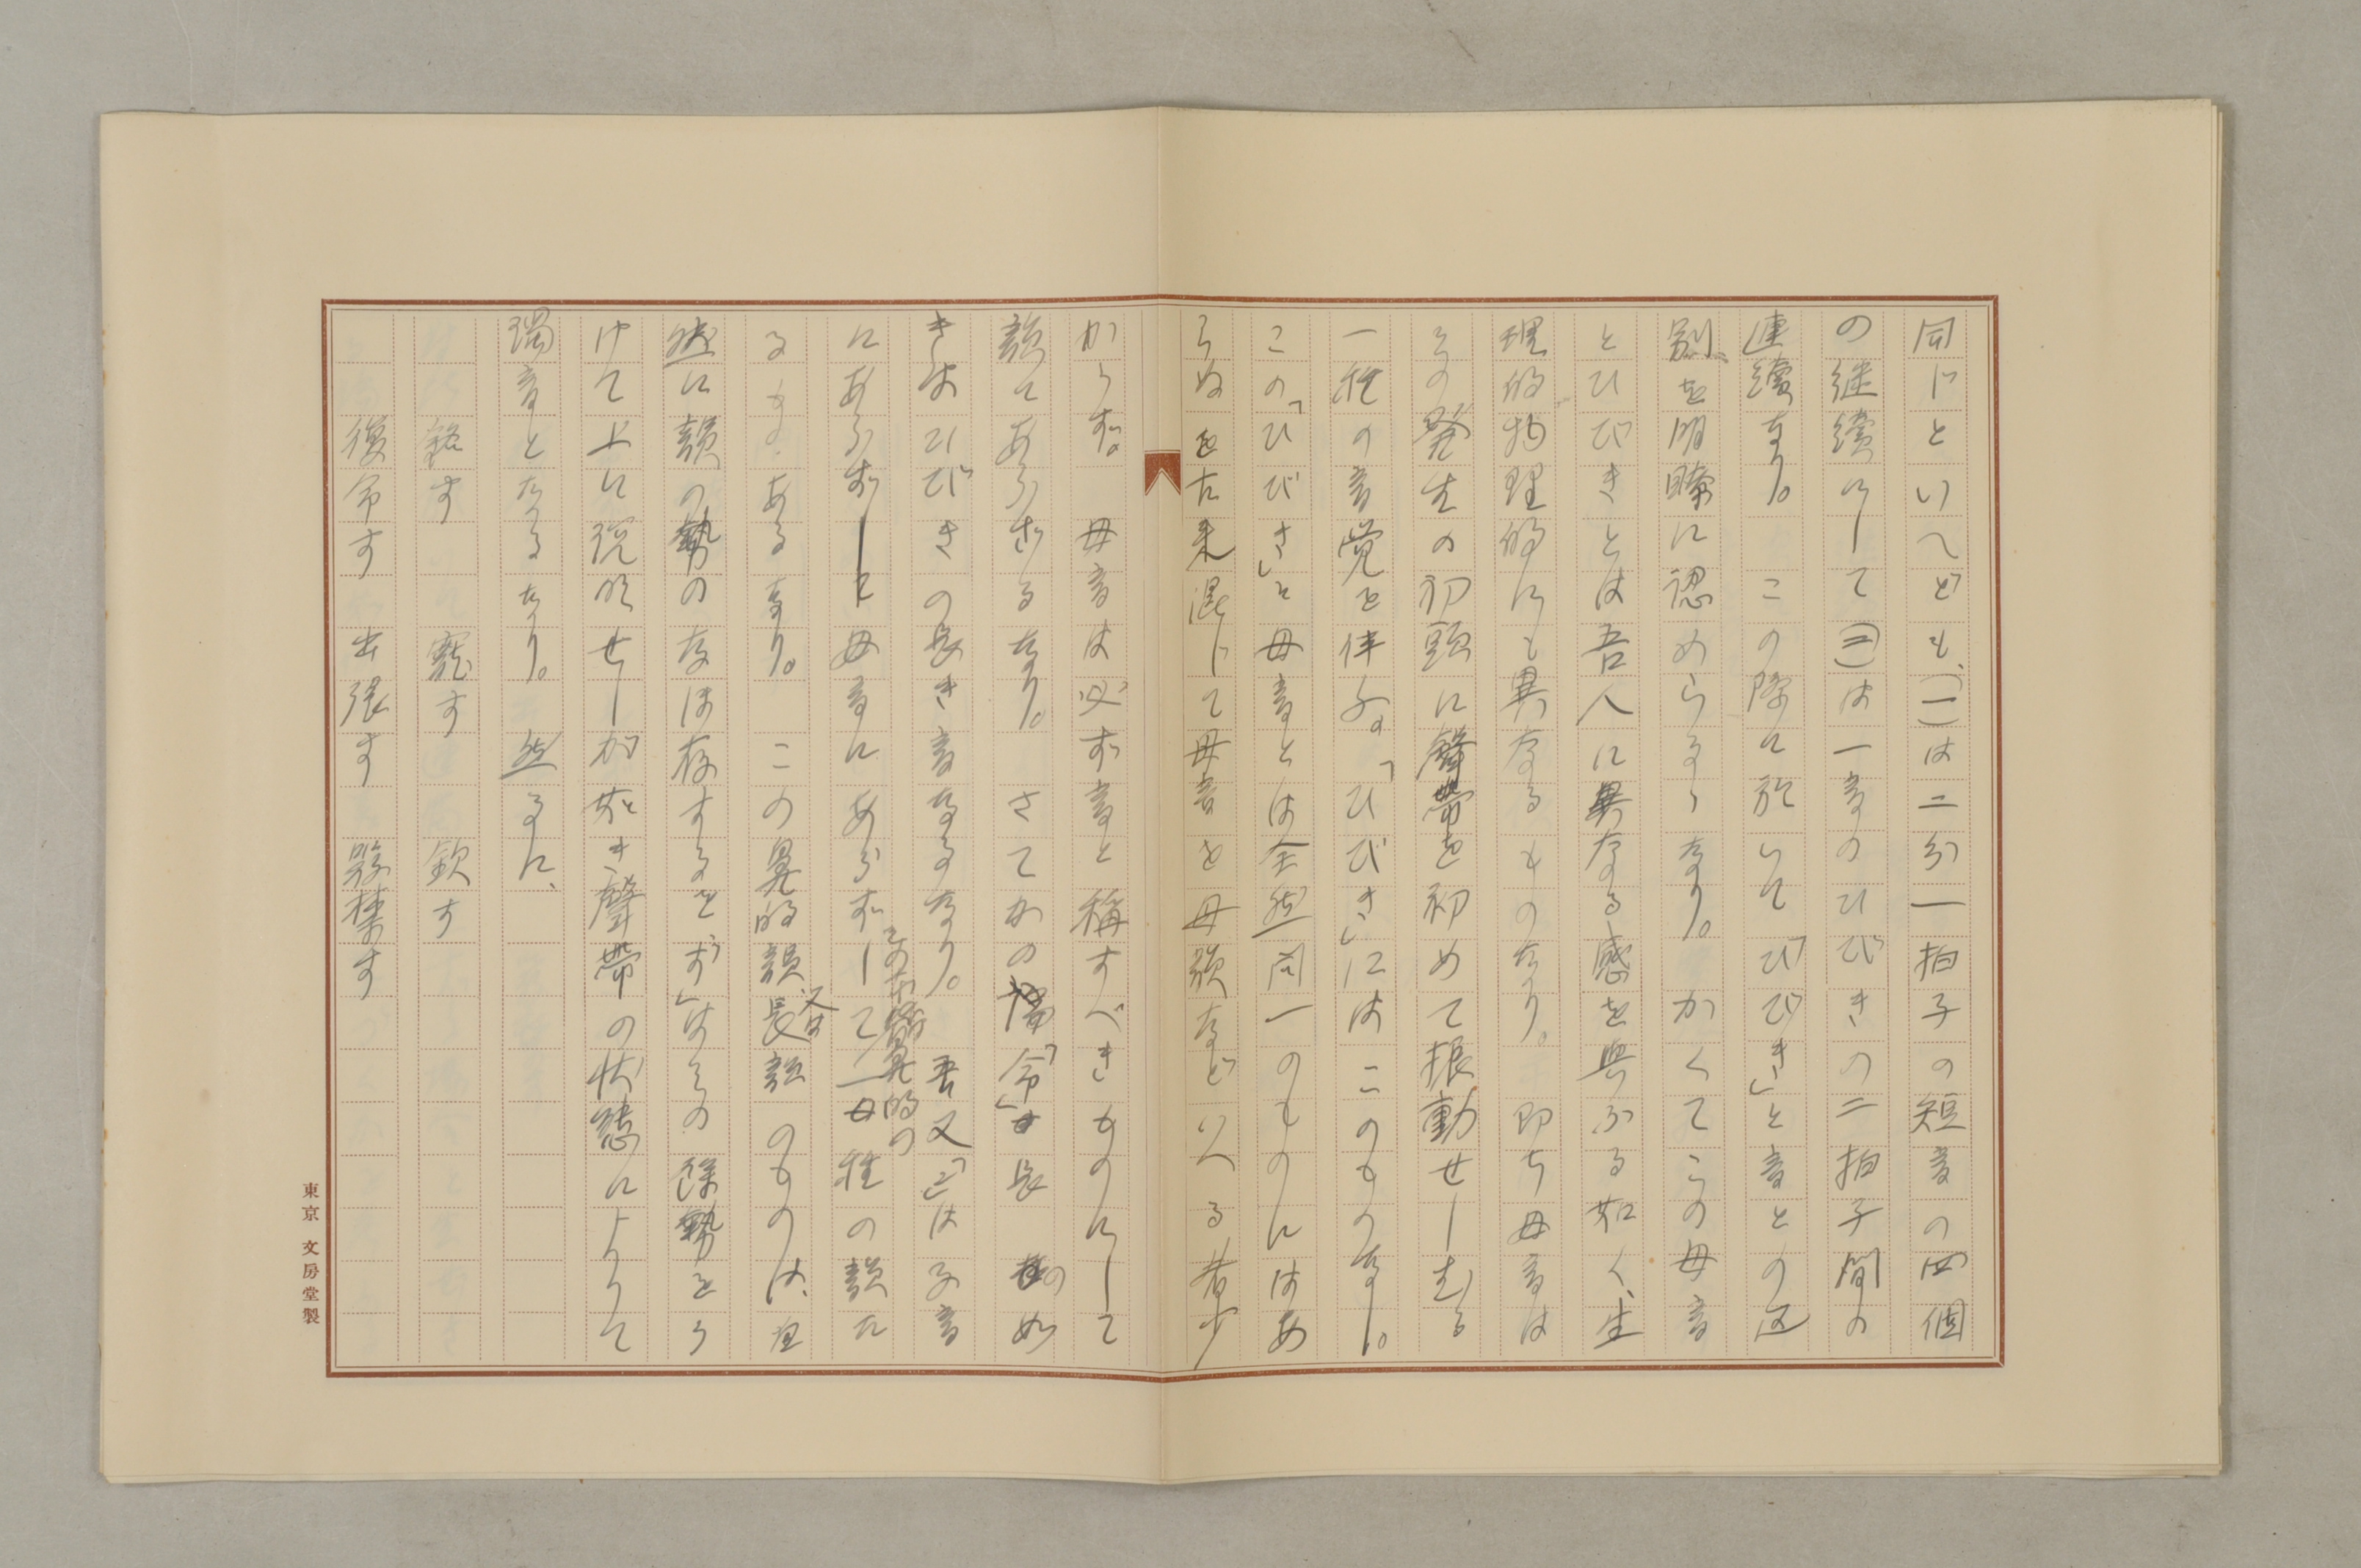 同じといへども、(一)は二分一拍子の短音の四個
の継續にして(二)は一音のひびきの二拍子間の
連續なり。　この際に於いて「ひびき」と音との区
別を明瞭に認めらるゝなり。　かくてこの母音
とひびきとは吾人に異なる感を與ふる如く、生
理的物理的にも異なるものなり。　即ち母音は
その発生の初頭に聲帶を初めて振動せしむる
一種の音覚を伴ふ。「ひびき」にはこのものなし。
この「ひびき」と母音とは全然同一のものにはあ
らぬを古来混じて母音を母韻などいへる者少
からず。　母音は必ず音と稱すべきものにして
韻にあらざるなり。　さてかの場令は長の如
きはひびきの長き音なるなり。　吾又「ン」は子音
にあらずしと母音にあらずして一種の韻た
その本質鼻的の
るものあるなり。　この鼻的韻長韻のものは、直
又は
然に韻の勢のなほ存するを「ず」はその餘勢をう
けて上に説明せしが如き聲帶の状態によりて
濁音となるなり。　然るに、
銘す　　寵す　　欽す
復命す　出張す　験樓す
東京 文房堂製